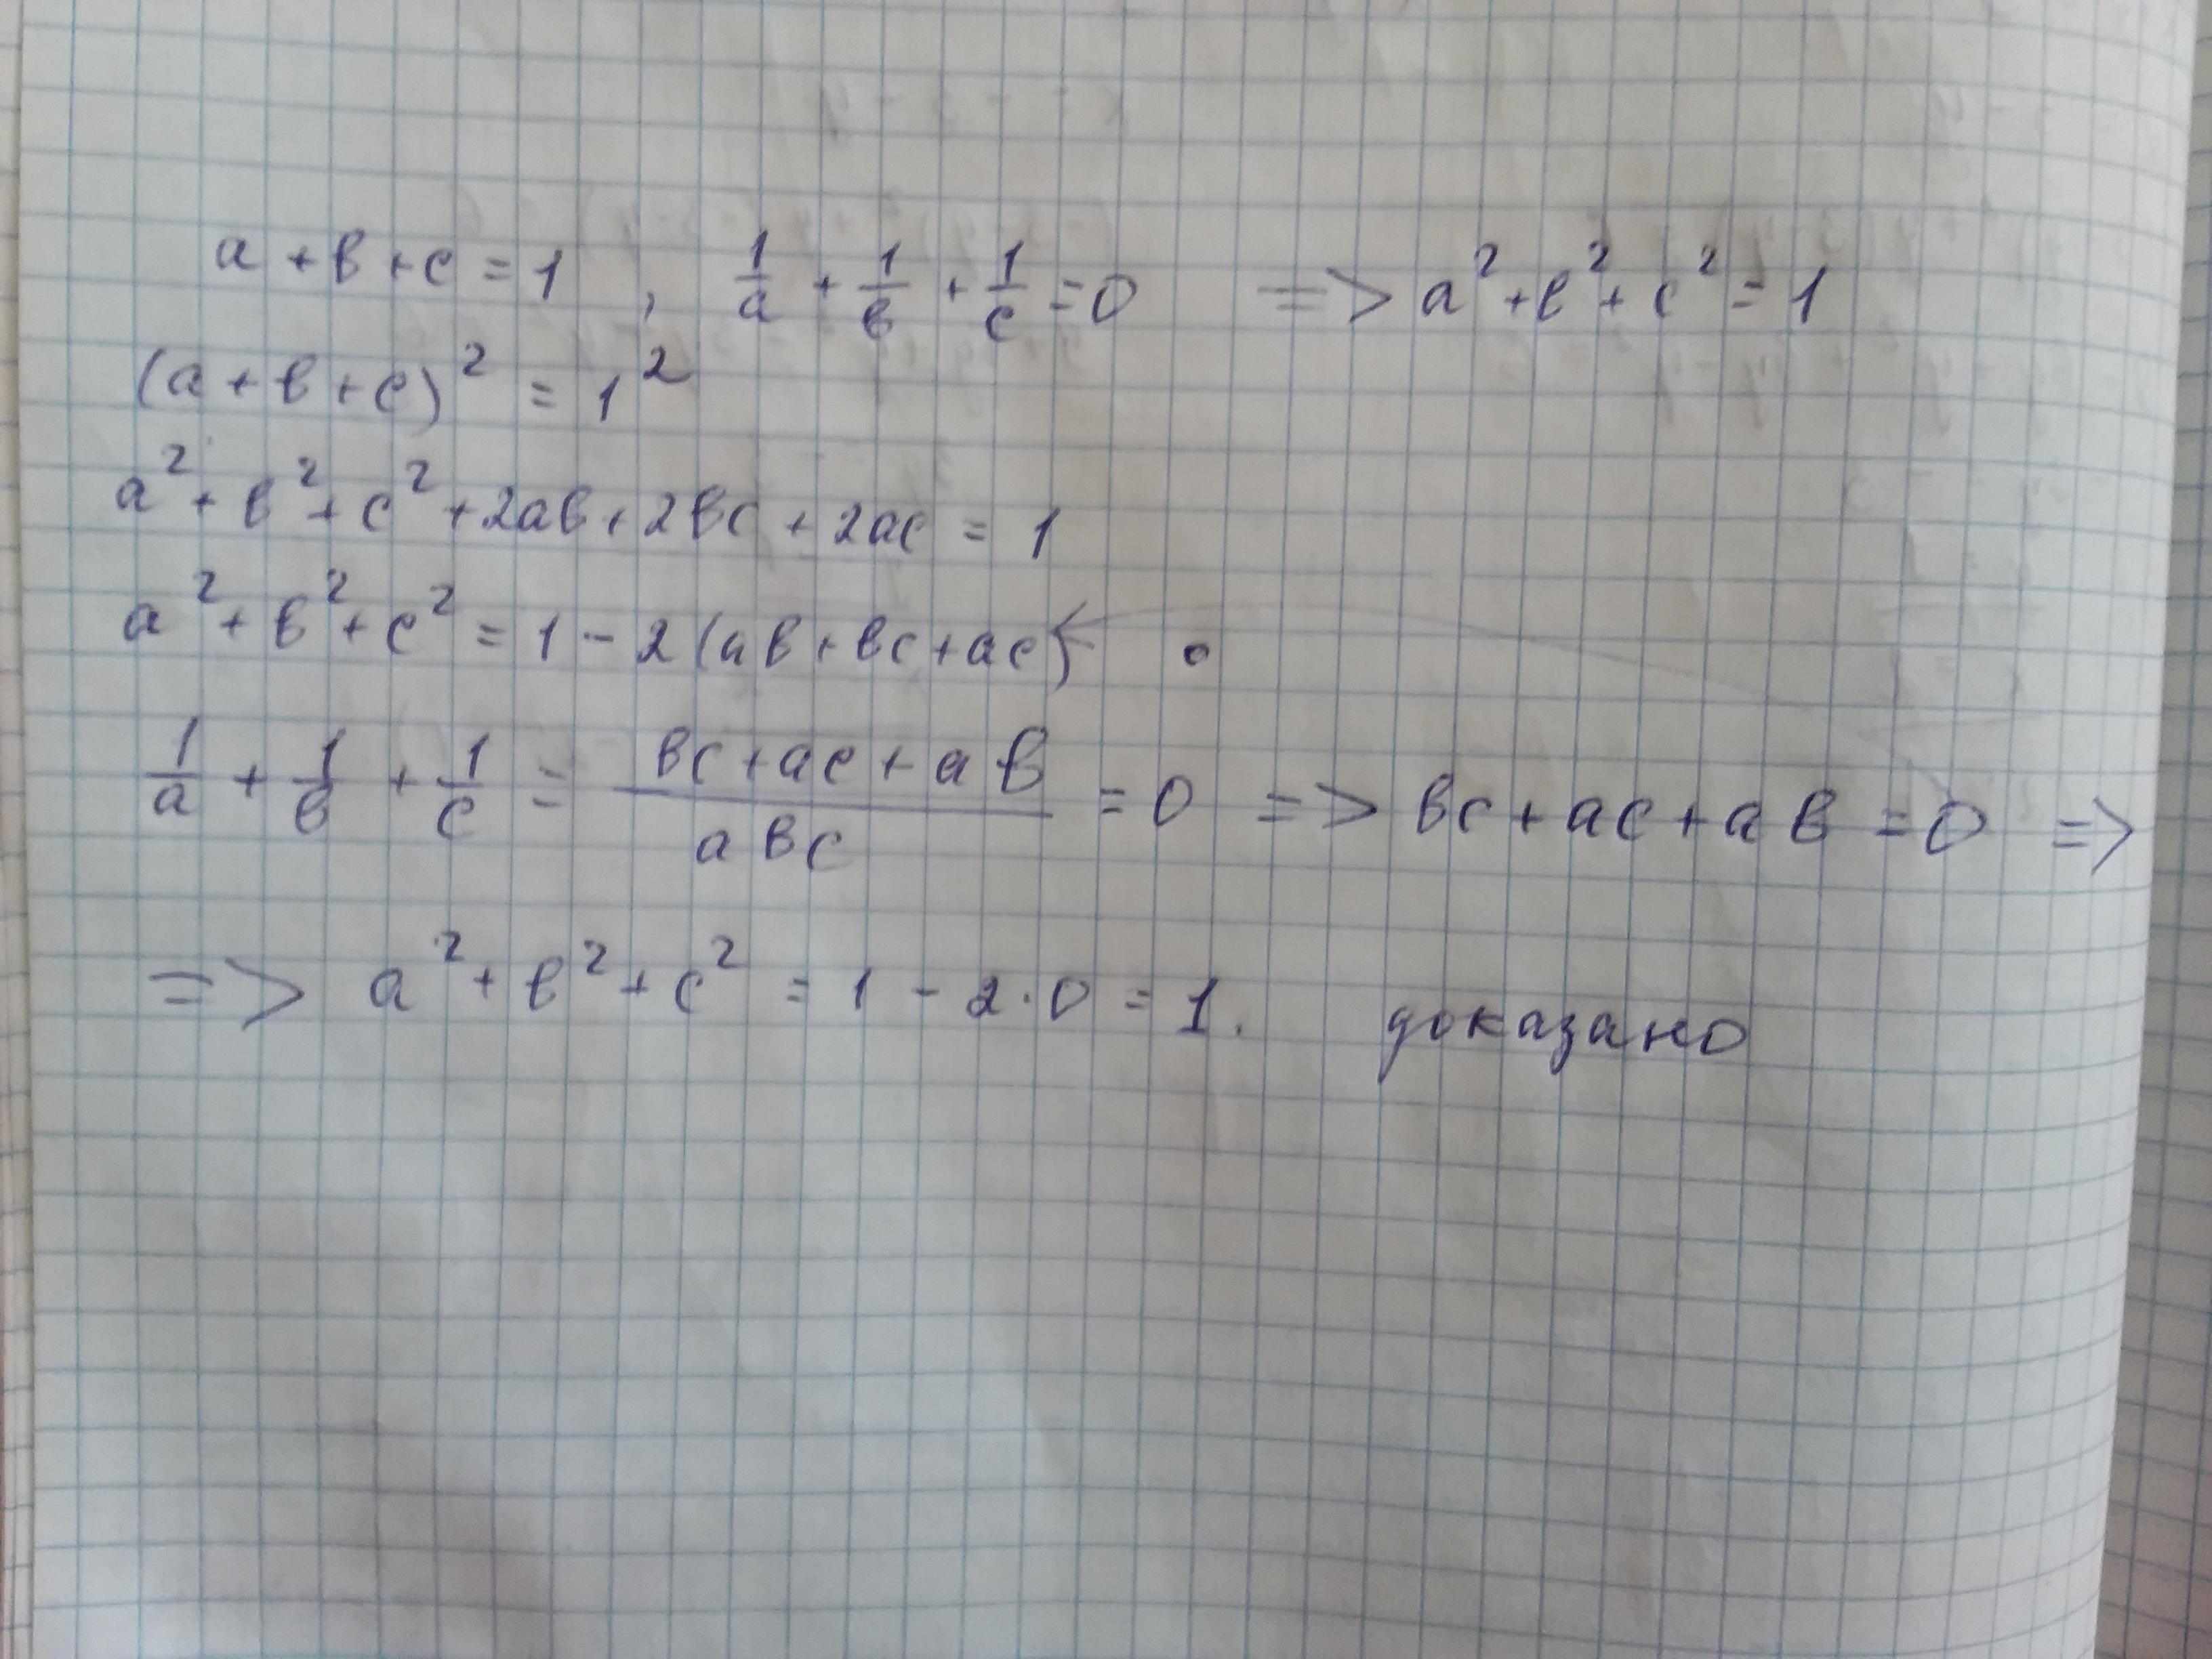 a + b + c = 1 , 1/a + 1/b + 1/c = 0 => a² + b² + c² = 1
(a + b + c)² = 1²
a² + b² + c² + 2ab + 2bc + 2ac = 1
a² + b² + c² = 1 - 2(ab + bc + ac)
1/a + 1/b + 1/c = (bc + ac + ab)/(abc) = 0 => bc + ac + ab = 0 =>
=> a² + b² + c² = 1 - 2·0 = 1. доказано